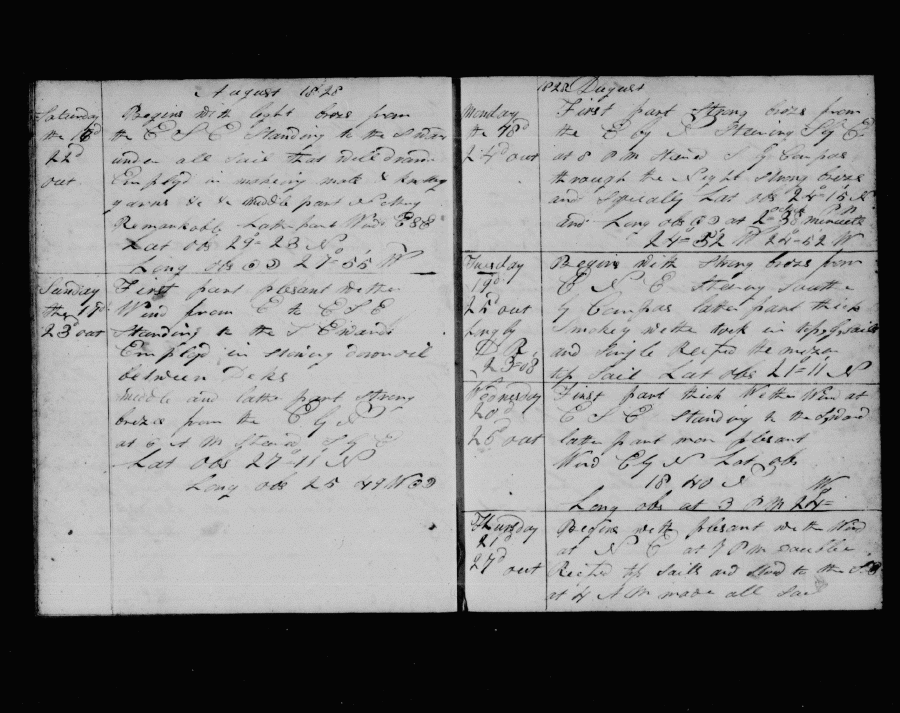 August 1828
Saturday
the 16d
22d
out
Begins with light brezs from
the E S E Standing to the S
under all Sail that will draw
Employd in makeing mats & knotting
yarns &c &c middle part Nothing
Remarkable Latter part Wind ESE
Lat obs 29= 23 N
Long obs 27=55 W
Sunday
the 17d
23d out
First part plesant wether
Wind from E to E S E
Standing to the S Eastward
Employd in stowing down oil
between Deks
middle and latter part strong
brezes from the E by N
at 6 A M Steerd S by E
Lat obs 27=11 N
Long obs 25 44 W
1828 August
Monday
the 18d
24d out
First part strong brezs from
the E by N Steering S by E
at 8 P M Steerd S by Compas
through the Night strong brezes
and Lat obs 24=15 N
and Long obs at 2 38 P M
24=52 W 24=52 W
Tuesday
19d
25d out
Long by
D R
23=08
Begins with Strong brezs from
E N E Steering South
by Compas latter part thick
Smokey wether took in topgallantsails
and Single Reefed the mizen
top Sail Lat obs 21=11 N
Wednesday
20d
26d out
First part thick Wether Wind at
E S E Standing to the Southard
latter part more plesant
Wind E by N Lat obs
18 40 N
Long obs at 3 P M 24= W
Thursday
21d
27d out
Begins with plesant wether Wind
at N E at 7 P M Double
Reefed top Sails and Stood to the
at 4 A M made all Sail